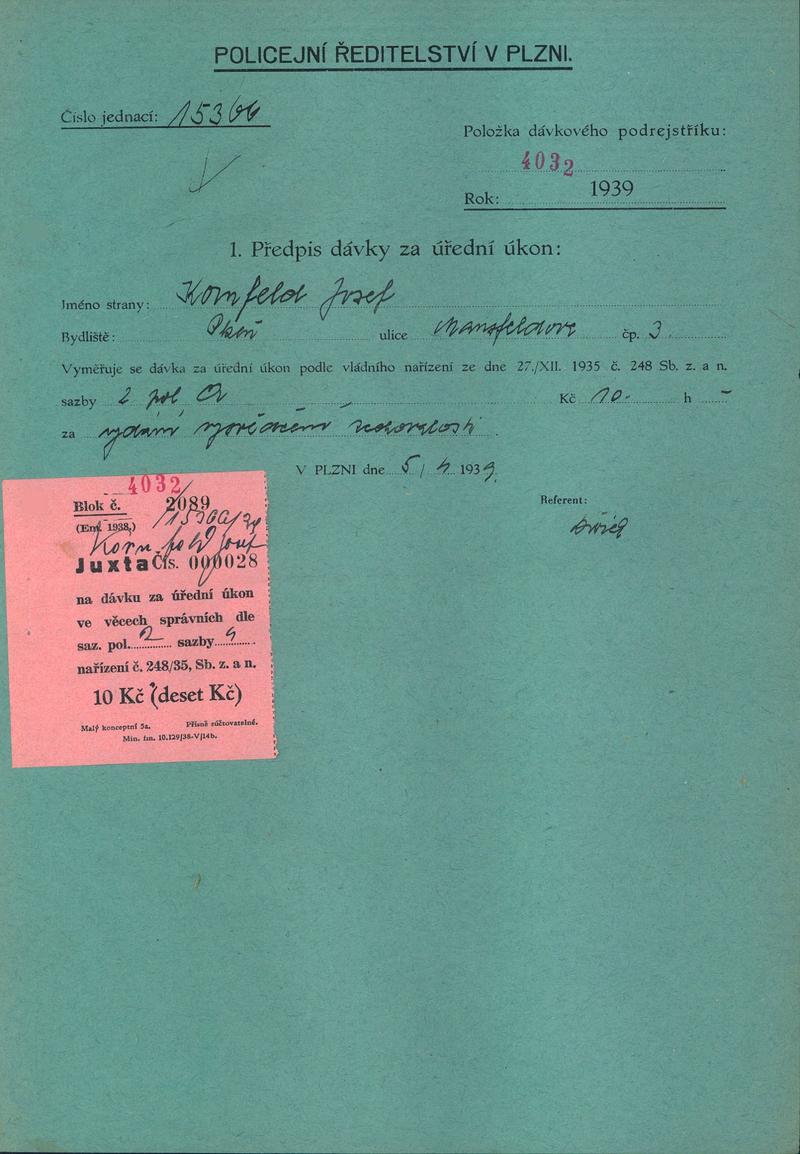 POLICEJNÍ ŘEDITELSTVÍ V PLZNI.
Číslo jednací: 15366
Položka dávkového podrejstříku:
4032
Rok: 1939
1. Předpis dávky za úřední úkon:
Jméno strany: Kornfeld Josef
Bydliště: Plzeň ulice Mansfeldova čp. 3
Vyměřuje se dávka za úřední úkon podle vládního nařízení ze dne 27./XII. 1935 č. 248 Sb. z. a n.
sazby 2 pol Kč 10.- h -
za vydání vysvědčení zachovalosti.
V PLZNI dne 5/4 1939.
Referent:
4032
Blok č. 2089
(Em. 1938,) 15366/39
Kornfeld Josef
Juxta Čís. 000028
na dávku za úřední úkon
ve věcech správních dle
saz. pol. 2 sazby
nařízení č. 248/35, Sb. z. a n.
10 Kč (deset Kč)
Malý konceptní 5a. Přísně zúčtovatelné.
Min. fin. 10.129/38-V/14b.